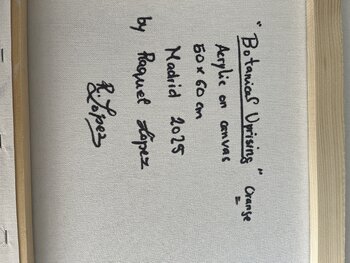 "Botanical Uprising" Orange
Acrylic on canvas
50 x 60 cm
Madrid 2025
by Raquel López
R. López